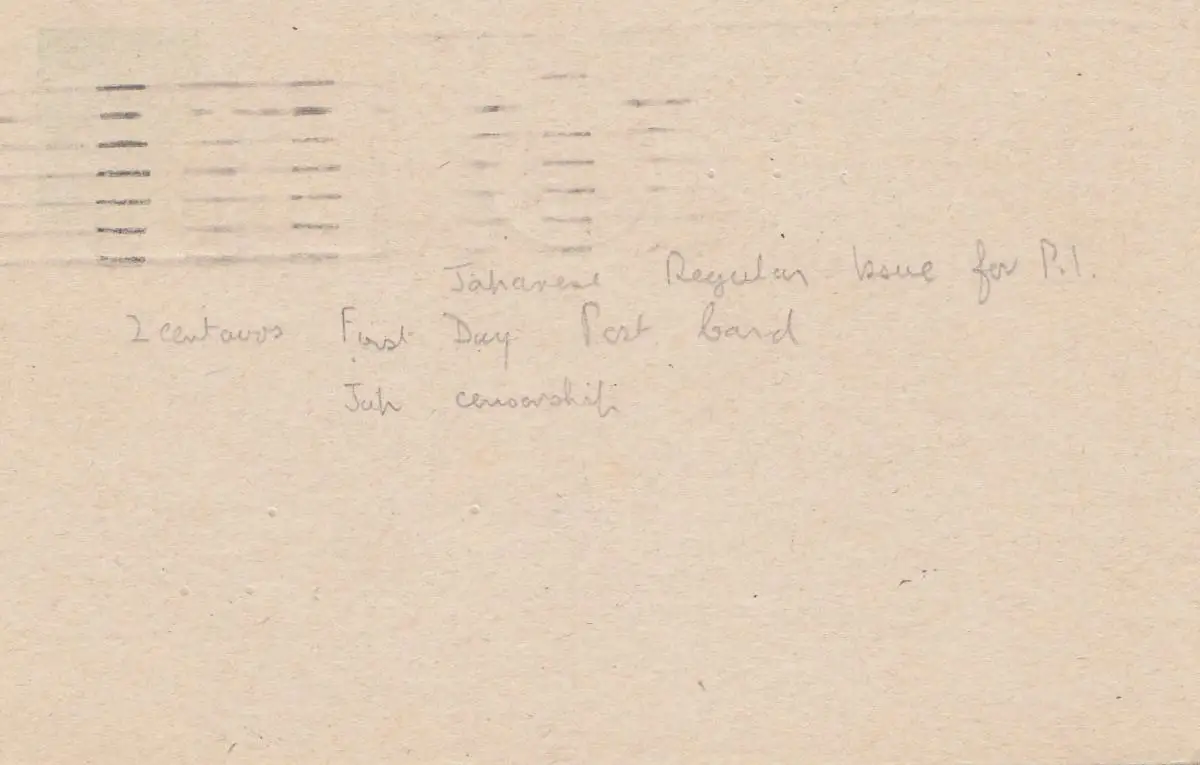 Japanese Regular Issue for P.I.
2 centavos First Day Post Card
Jap censorship